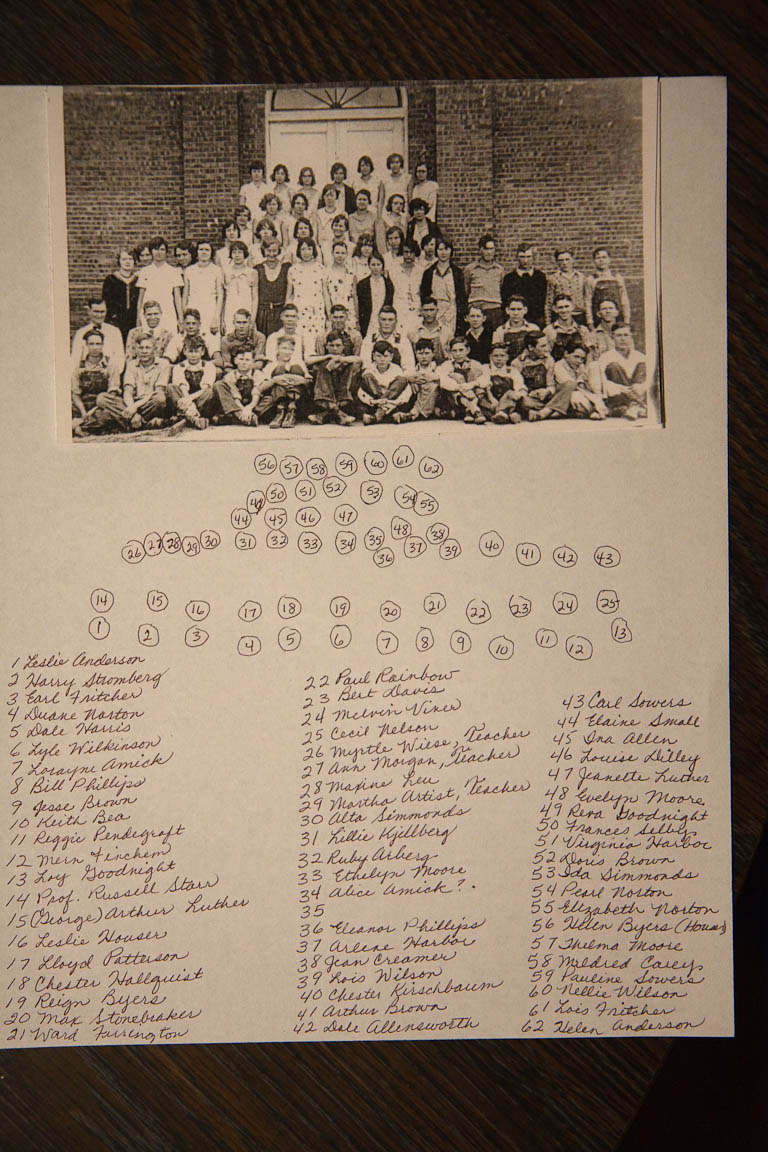 56 57 58 59 60 61 62
49 50 51 52 53 54 55
44 45 46 47 48
26 27 28 29 30 31 32 33 34 35 36 37 38 39 40 41 42 43
14 15 16 17 18 19 20 21 22 23 24 25
1 2 3 4 5 6 7 8 9 10 11 12 13
1 Leslie Anderson
2 Harry Stromberg
3 Earl Fritcher
4 Duane Norton
5 Dale Harris
6 Lyle Wilkinson
7 Lorayne Amick
8 Bill Phillips
9 Jesse Brown
10 Keith Bea
11 Reggie Pendegraft
12 Mern Finchem
13 Loy Goodnight
14 Prof. Russell Starr
15 (George) Arthur Luther
16 Leslie Houser
17 Lloyd Patterson
18 Chester Hallquist
19 Reign Byers
20 Max Stonebraker
21 Ward Farrington
22 Paul Rainbow
23 Bert Davis
24 Melvin Viner
25 Cecil Nelson
26 Myrtle Wiese, Teacher
27 Ann Morgan, Teacher
28 Maxine Leu
29 Martha Artist, Teacher
30 Alta Simmonds
31 Lillie Kjellberg
32 Ruby Arberg
33 Ethelyn Moore
34 Alice Amick ?.
35
36 Eleanor Phillips
37 Arlene Harbor
38 Jean Creamer
39 Lois Wilson
40 Chester Kirschbaum
41 Arthur Brown
42 Dale Allensworth
43 Carl Sowers
44 Elaine Small
45 Ina Allen
46 Louise Dilley
47 Jeanette Luther
48 Evelyn Moore
49 Reva Goodnight
50 Frances Selby
51 Virginia Harbor
52 Doris Brown
53 Ida Simmonds
54 Pearl Norton
55 Elizabeth Norton
56 Helen Byers
57 Thelma Moore
58 Mildred Careys
59 Pauline Sowers
60 Nellie Wilson
61 Lois Fritcher
62 Helen Anderson